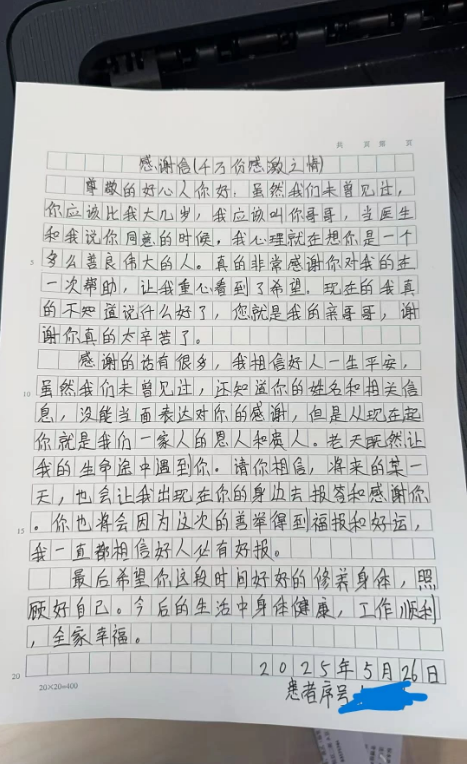 共 页 第 页
感谢信(千万份感激之情)
尊敬的好心人你好，虽然我们未曾见过，
你应该比我大几岁，我应该叫你哥哥，当医生
和我说你同意的时候，我心理就在想你是一个
多么善良伟大的人。真的非常感谢你对我的在
一次帮助，让我重心看到了希望。现在的我真
的不知道说什么好了，您就是我的亲哥哥，谢
谢你真的太辛苦了。
感谢的话有很多，我相信好人一生平安，
虽然我们未曾见过，还知道你的姓名和相关信
息，没能当面表达对你的感谢，但是从现在起
你就是我们一家人的恩人和贵人。老天既然让
我的生命途中遇到你。请你相信，将来的某一
天，也会让我出现在你的身边去报答和感谢你
。你也将会因为这次的善举得到福报和好运，
我一直都相信好人必有好报。
最后希望你这段时间好好的修养身体，照
顾好自己。今后的生活中身体健康，工作顺利
，全家幸福。
2025年5月26日
患者序号
5
10
15
20
20×20=400